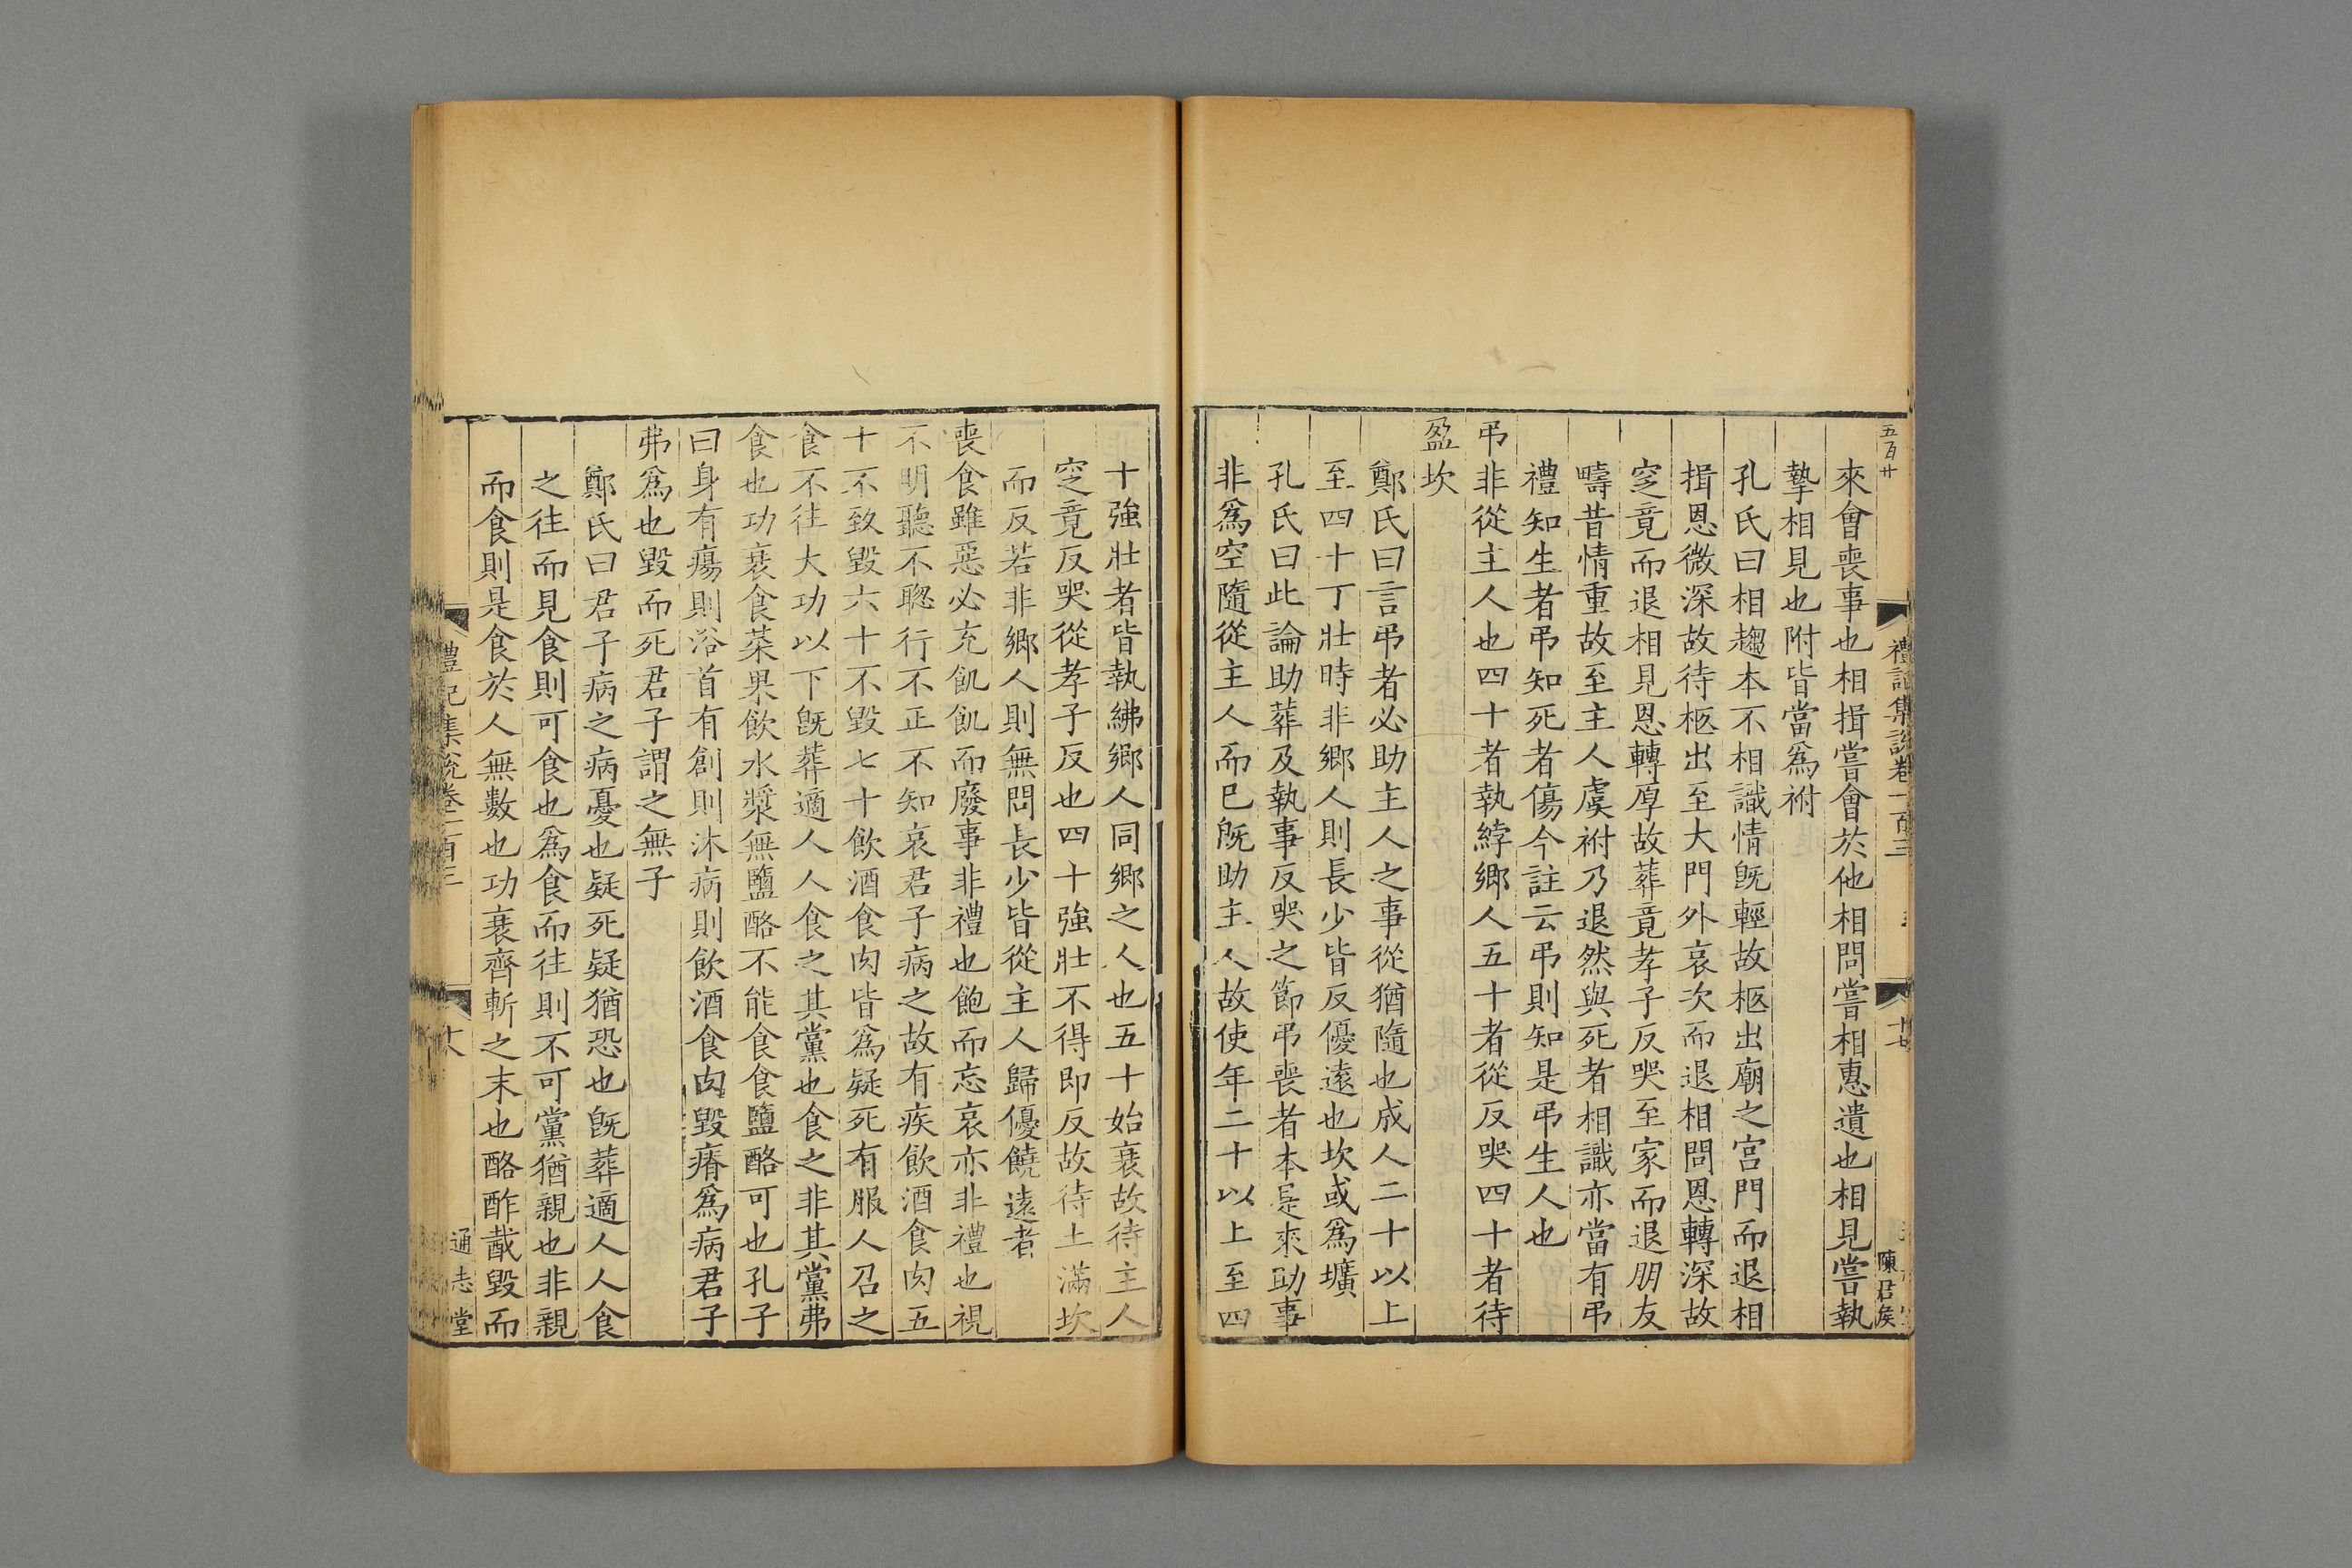 五百廿
禮記集說卷一百三
十七
陳君侯
來會喪事也相揖嘗會於他相問嘗相惠遺也相見嘗執
摯相見也附皆當爲祔
孔氏曰相趨本不相識情旣輕故柩出廟之宮門而退相
揖恩微深故待柩出至大門外哀次而退相問恩轉深故
窆竟而退相見恩轉厚故葬竟孝子反哭至家而退朋友
疇昔情重故至主人虞祔乃退然與死者相識亦當有弔
禮知生者弔知死者傷今註云弔則知是弔生人也
弔非從主人也四十者執綍鄉人五十者從反哭四十者待
盈坎
鄭氏曰言弔者必助主人之事從猶隨也成人二十以上
至四十丁壯時非鄉人則長少皆反優遠也坎或爲壙
孔氏曰此論助葬及執事反哭之節弔喪者本是來助事
非爲空隨從主人而巳旣助主人故使年二十以上至四
十強壯者皆執紼鄉人同鄉之人也五十始衰故待主人
窆竟反哭從孝子反也四十強壯不得即反故待土滿坎
而反若非鄉人則無問長少皆從主人歸優饒遠者
喪食雖惡必充飢飢而廢事非禮也飽而忘哀亦非禮也視
不明聽不聦行不正不知哀君子病之故有疾飲酒食肉五
十不致毀六十不毀七十飲酒食肉皆爲疑死有服人召之
食不往大功以下旣葬適人人食之其黨也食之非其黨弗
食也功衰食菜果飲水漿無鹽酪不能食食鹽酪可也孔子
曰身有瘍則浴首有創則沐病則飲酒食肉毀瘠爲病君子
弗爲也毀而死君子謂之無子
鄭氏曰君子病之病憂也疑死疑猶恐也旣葬適人人食
之往而見食則可食也爲食而往則不可黨猶親也非親
而食則是食於人無數也功衰齊斬之末也酪酢酨毀而
禮記集說卷一百三
十八
通志堂